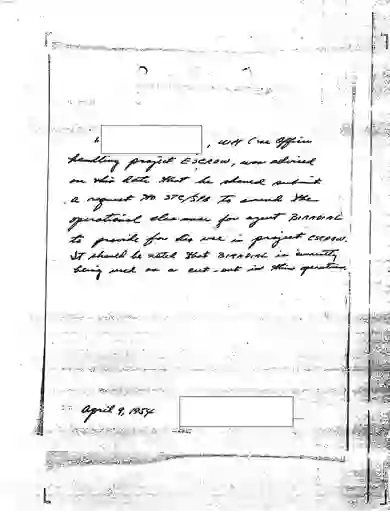 , WH Case Officer
handling project ESCROW, was advised
on this date that he should submit
a request to STC/SPB to amend the
operational clearance for agent
to provide for his use in project ESCROW.
It should be noted that is currently
being used as a cut-out in this operation
April 9, 1954